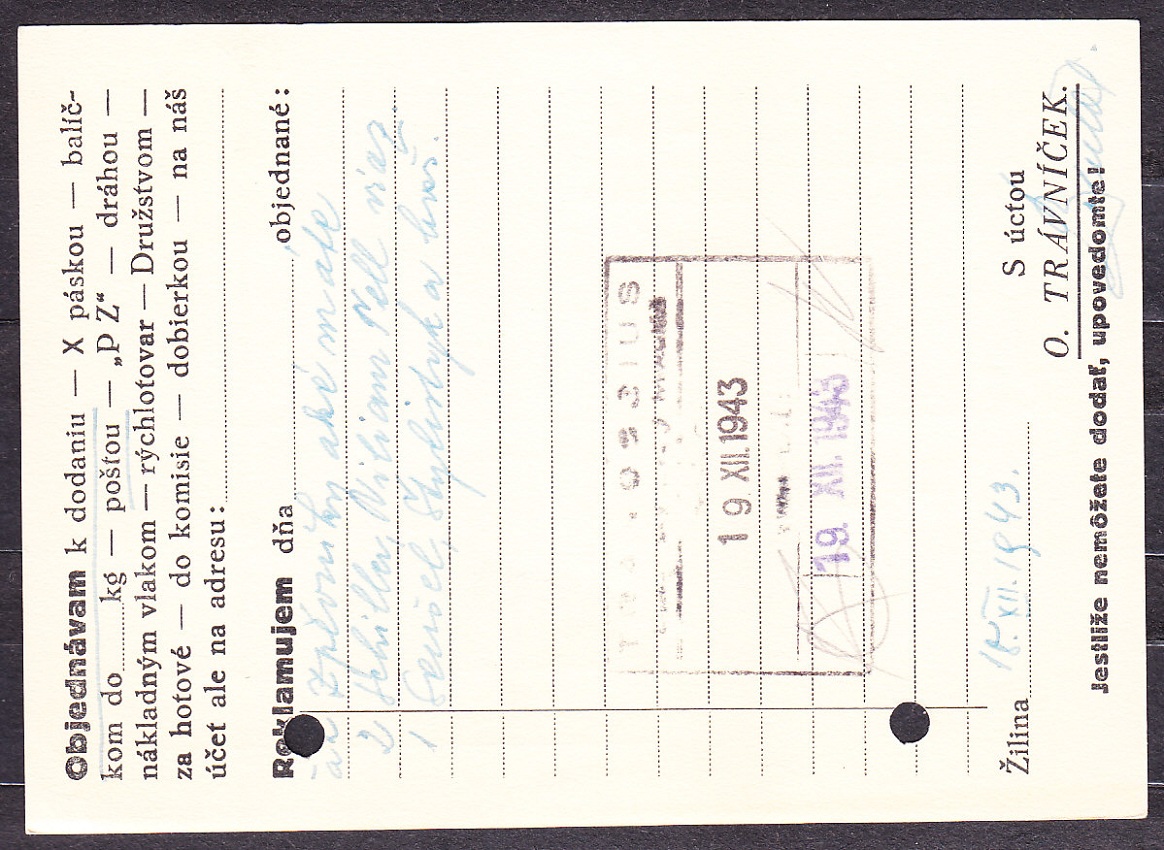 Objednávam k dodaniu — X páskou — balíč-
kom do ........ kg — poštou — „P Z“ — dráhou —
nákladným vlakom — rýchlotovar — Družstvom —
za hotové — do komisie — dobierkou — na náš
účet ale na adresu:
Reklamujem dňa objednané:
aké máte
2 Schiller, Viliam Tell viaz
1
19 XII. 1943
19. XII. 1943
Žilina XII. 1943.
S úctou
O. TRÁVNÍČEK.
Jestliže nemôžete dodať, upovedomte!